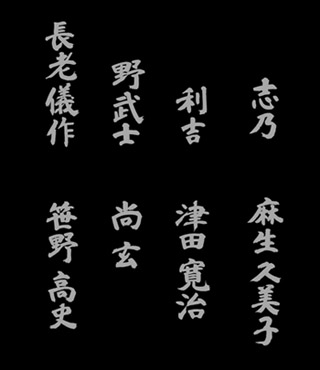 志乃 麻生久美子
利吉 津田寛治
野武士 尚玄
長老儀作 笹野高史